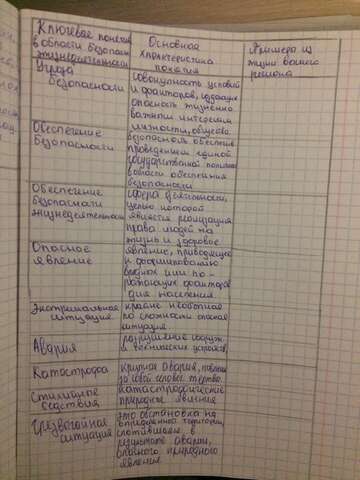 Ключевые понятия
в области безопасн.
жизнедеятельности
Основная
характеристика
понятия
Примеры из
жизни вашего
региона
Угроза
безопасности
совокупность условий
и факторов, создающих
опасность жизненно
важным интересам
личности, общества
Обеспечение
безопасности
безопасность обеспеч.
проведением единой
государственной политики
в области обеспечения
безопасности
Обеспечение
безопасности
жизнедеятельности
сфера деятельности,
целью которой
является реализация
права людей на
жизнь и здоровье
Опасное
явление
явление, приводящее
к формированию
вредных или по-
ражающих факторов
для населения.
Экстримальная
ситуация
крайне необычная
по сложности опасная
ситуация
Авария
разрушение сооруж.
и технических устройств,
Катастрофа
крупная авария, повлек.
за собой человеч. жертвы.
Стихийные
бедствия
катастрофические
природные явления
Чрезвычайная
ситуация
это обстановка на
определённой территории,
сложившаяся в
результате аварии,
опасного природного
явления